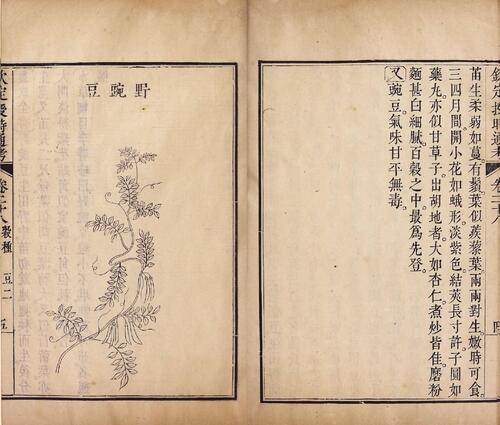 欽定授時通考 卷二十八
苗生柔弱如蔓。有鬚。葉似蒺藜葉。兩兩對生。嫩時可食。
三四月間開小花如蛾形。淡紫色。結莢長寸許。子圓如
藥丸。亦似甘草子。出胡地者。大如杏仁。煮炒皆佳。磨粉
麵甚白細膩。百穀之中。最爲先登。
又豌豆。氣味甘平無毒。
野豌豆
欽定授時通考 卷二十八 穀種 豆二 五